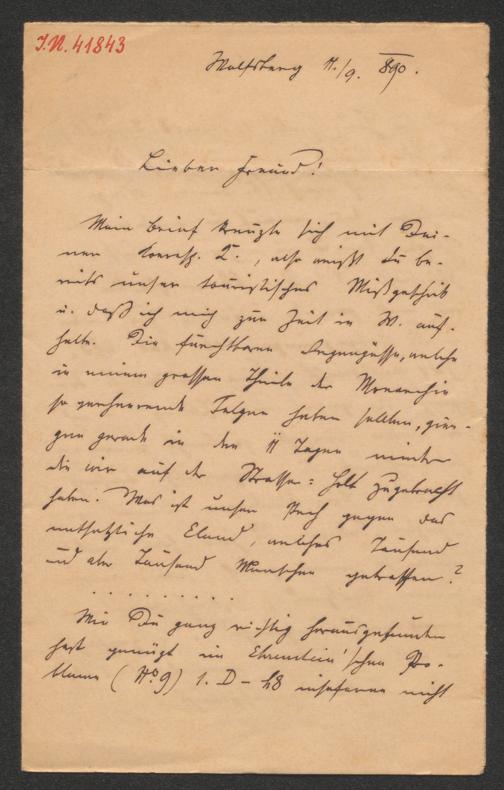 I.N. 41843
Wolfsberg 11./9. 890.
Lieber Freund!
Mein Brief kreuzte sich mit Dei-
ner Corresp. K., also weißt Du be-
reits unser touristisches Mißgeschick
u. daß ich mich zur Zeit in W. auf-
halte. Die furchtbaren Regengüsse, welche
in einem grossen Theile der Monarchie
so verheerende Folgen haben sollten, gien-
gen gerade in den 11 Tagen nieder
die wir auf der Strasse: Holt zugebracht
haben. Was ist unser Pech gegen das
entsetzliche Elend, welches Tausend
und aber Tausend Menschen getroffen?
. . . . . . . . .
Wie Du ganz richtig herausgefunden
hast genügt im Ehrenstein'schen Pro-
bleme (No 9) 1. D – h8 insoferne nicht